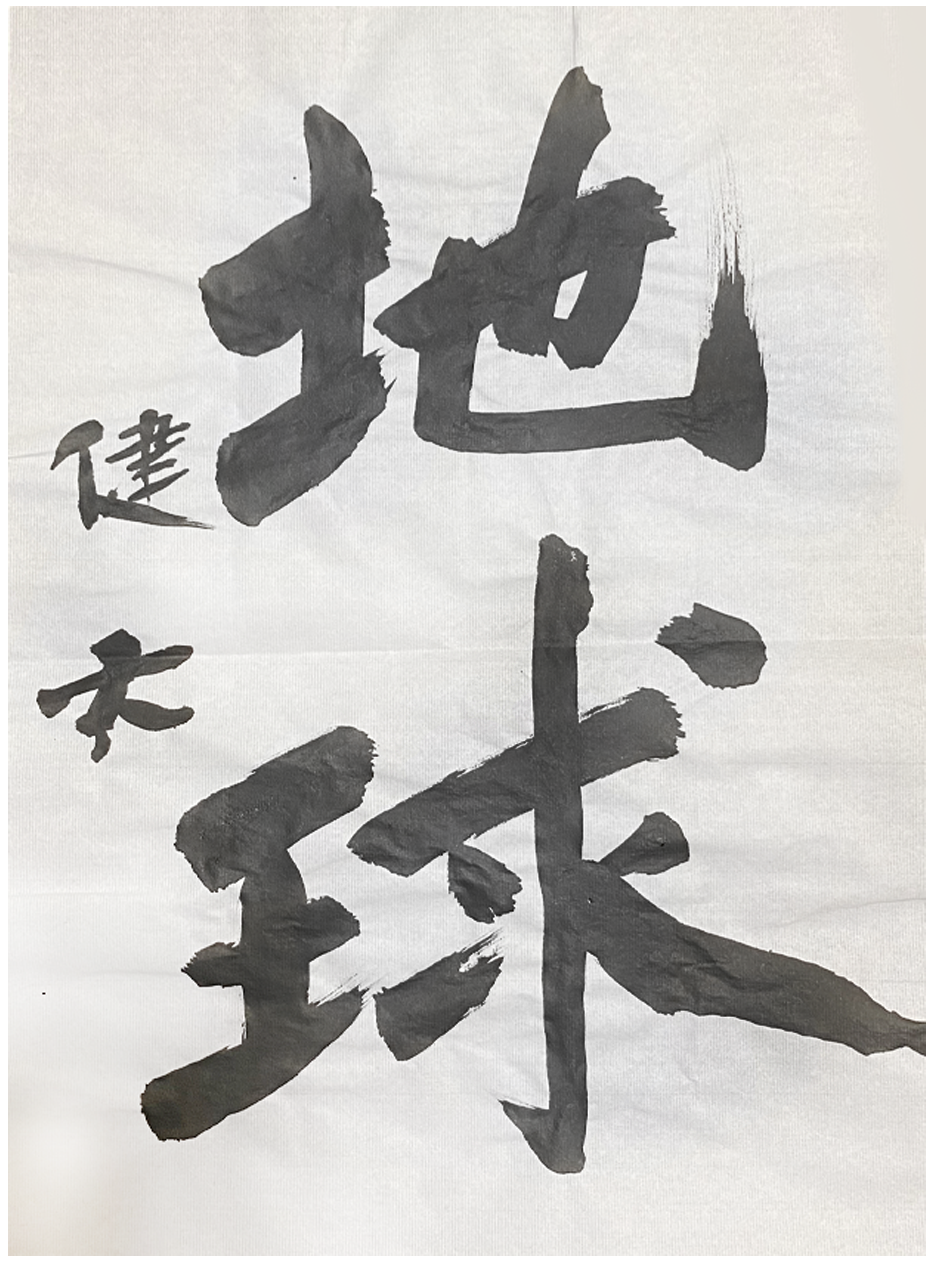 地球
健太